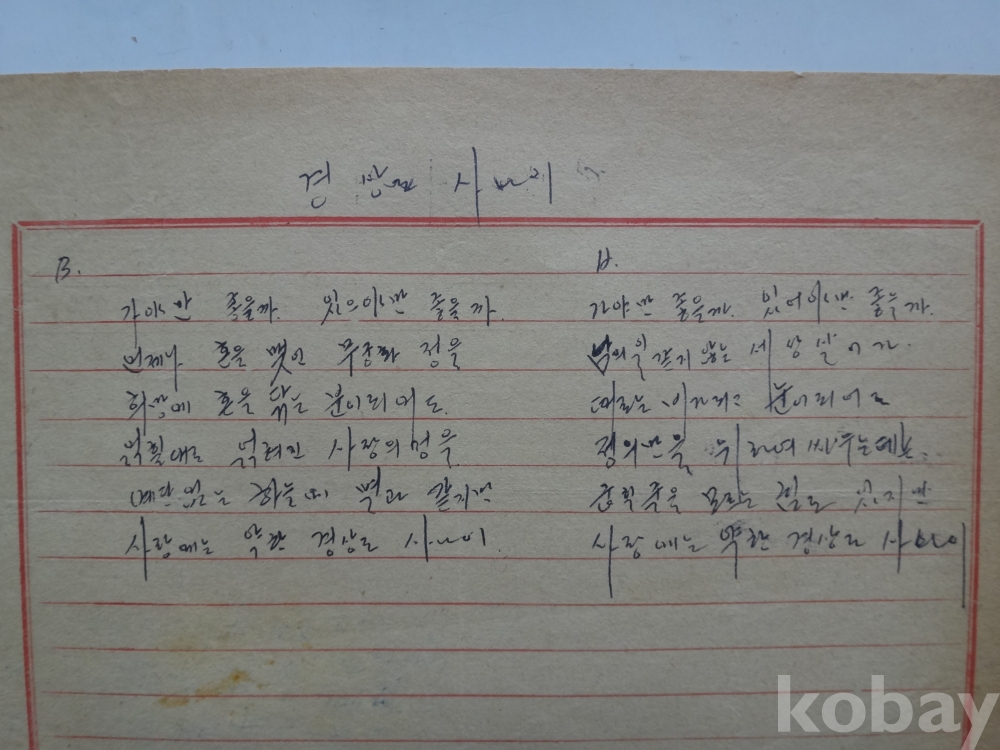 경상도 사나이
B.
가야만 좋을까. 있으야만 좋을까.
언제나 흔을 맺인 무궁화 정을
흔을 는 분이되여도.
얽힐대로 얽혀진 사랑의 정을
없는 하늘에 별과 같지만
사랑에는 약한 경상도 사나이.
A.
가야만 좋을까. 있어야만 좋을까.
남의 일 같지 않는 세상살이가
때로는 분이되어도
정의만을 위하여 싸우는데는
모르는 힘도 있지만
사랑에는 약한 경상도 사나이
kobay